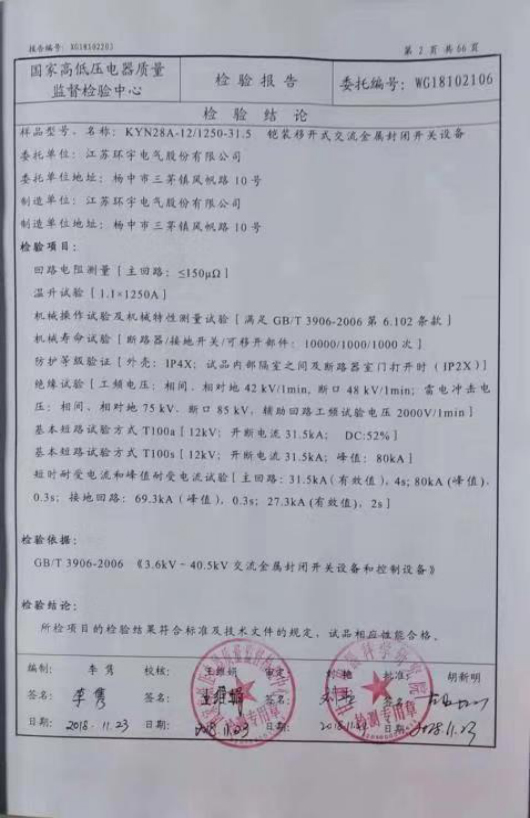 报告编号: XG18102203
第 2 页 共 66 页
国家高低压电器质量
监督检验中心
检 验 报 告
委托编号: WG18102106
检 验 结 论
样品型号、名称: KYN28A-12/1250-31.5 铠装移开式交流金属封闭开关设备
委托单位: 江苏环宇电气股份有限公司
委托单位地址: 杨中市三茅镇风帆路 10 号
制造单位: 江苏环宇电气股份有限公司
制造单位地址: 杨中市三茅镇风帆路 10 号
检验项目:
回路电阻测量［主回路: ≤150μΩ］
温升试验［1.1×1250A］
机械操作试验及机械特性测量试验［满足 GB/T 3906-2006 第 6.102 条款］
机械寿命试验［断路器/接地开关/可移开部件: 10000/1000/1000 次］
防护等级验证［外壳: IP4X; 试品内部隔室之间及断路器室门打开时（IP2X）］
绝缘试验［工频电压: 相间、相对地 42 kV/1min, 断口 48 kV/1min; 雷电冲击电
压: 相间、相对地 75 kV、断口 85 kV, 辅助回路工频试验电压 2000V/1min］
基本短路试验方式 T100a［12kV; 开断电流 31.5kA; DC:52%］
基本短路试验方式 T100s［12kV; 开断电流 31.5kA; 峰值: 80kA］
短时耐受电流和峰值耐受电流试验［主回路: 31.5kA（有效值）, 4s; 80kA (峰值),
0.3s; 接地回路: 69.3kA（峰值）, 0.3s; 27.3kA (有效值), 2s］
检验依据:
GB/T 3906-2006 《3.6kV～40.5kV 交流金属封闭开关设备和控制设备》
检验结论:
所检项目的检验结果符合标准及技术文件的规定, 试品相应性能合格。
编制: 李隽 校核: 王维娟 审定: 刘艳 批准: 胡新明
签名: 李隽 签名: 王维娟 签名: 签名:
日期: 2018.11.23 日期: 2018.11.23 日期: 日期: 2018.11.23
检测专用章
检测专用章